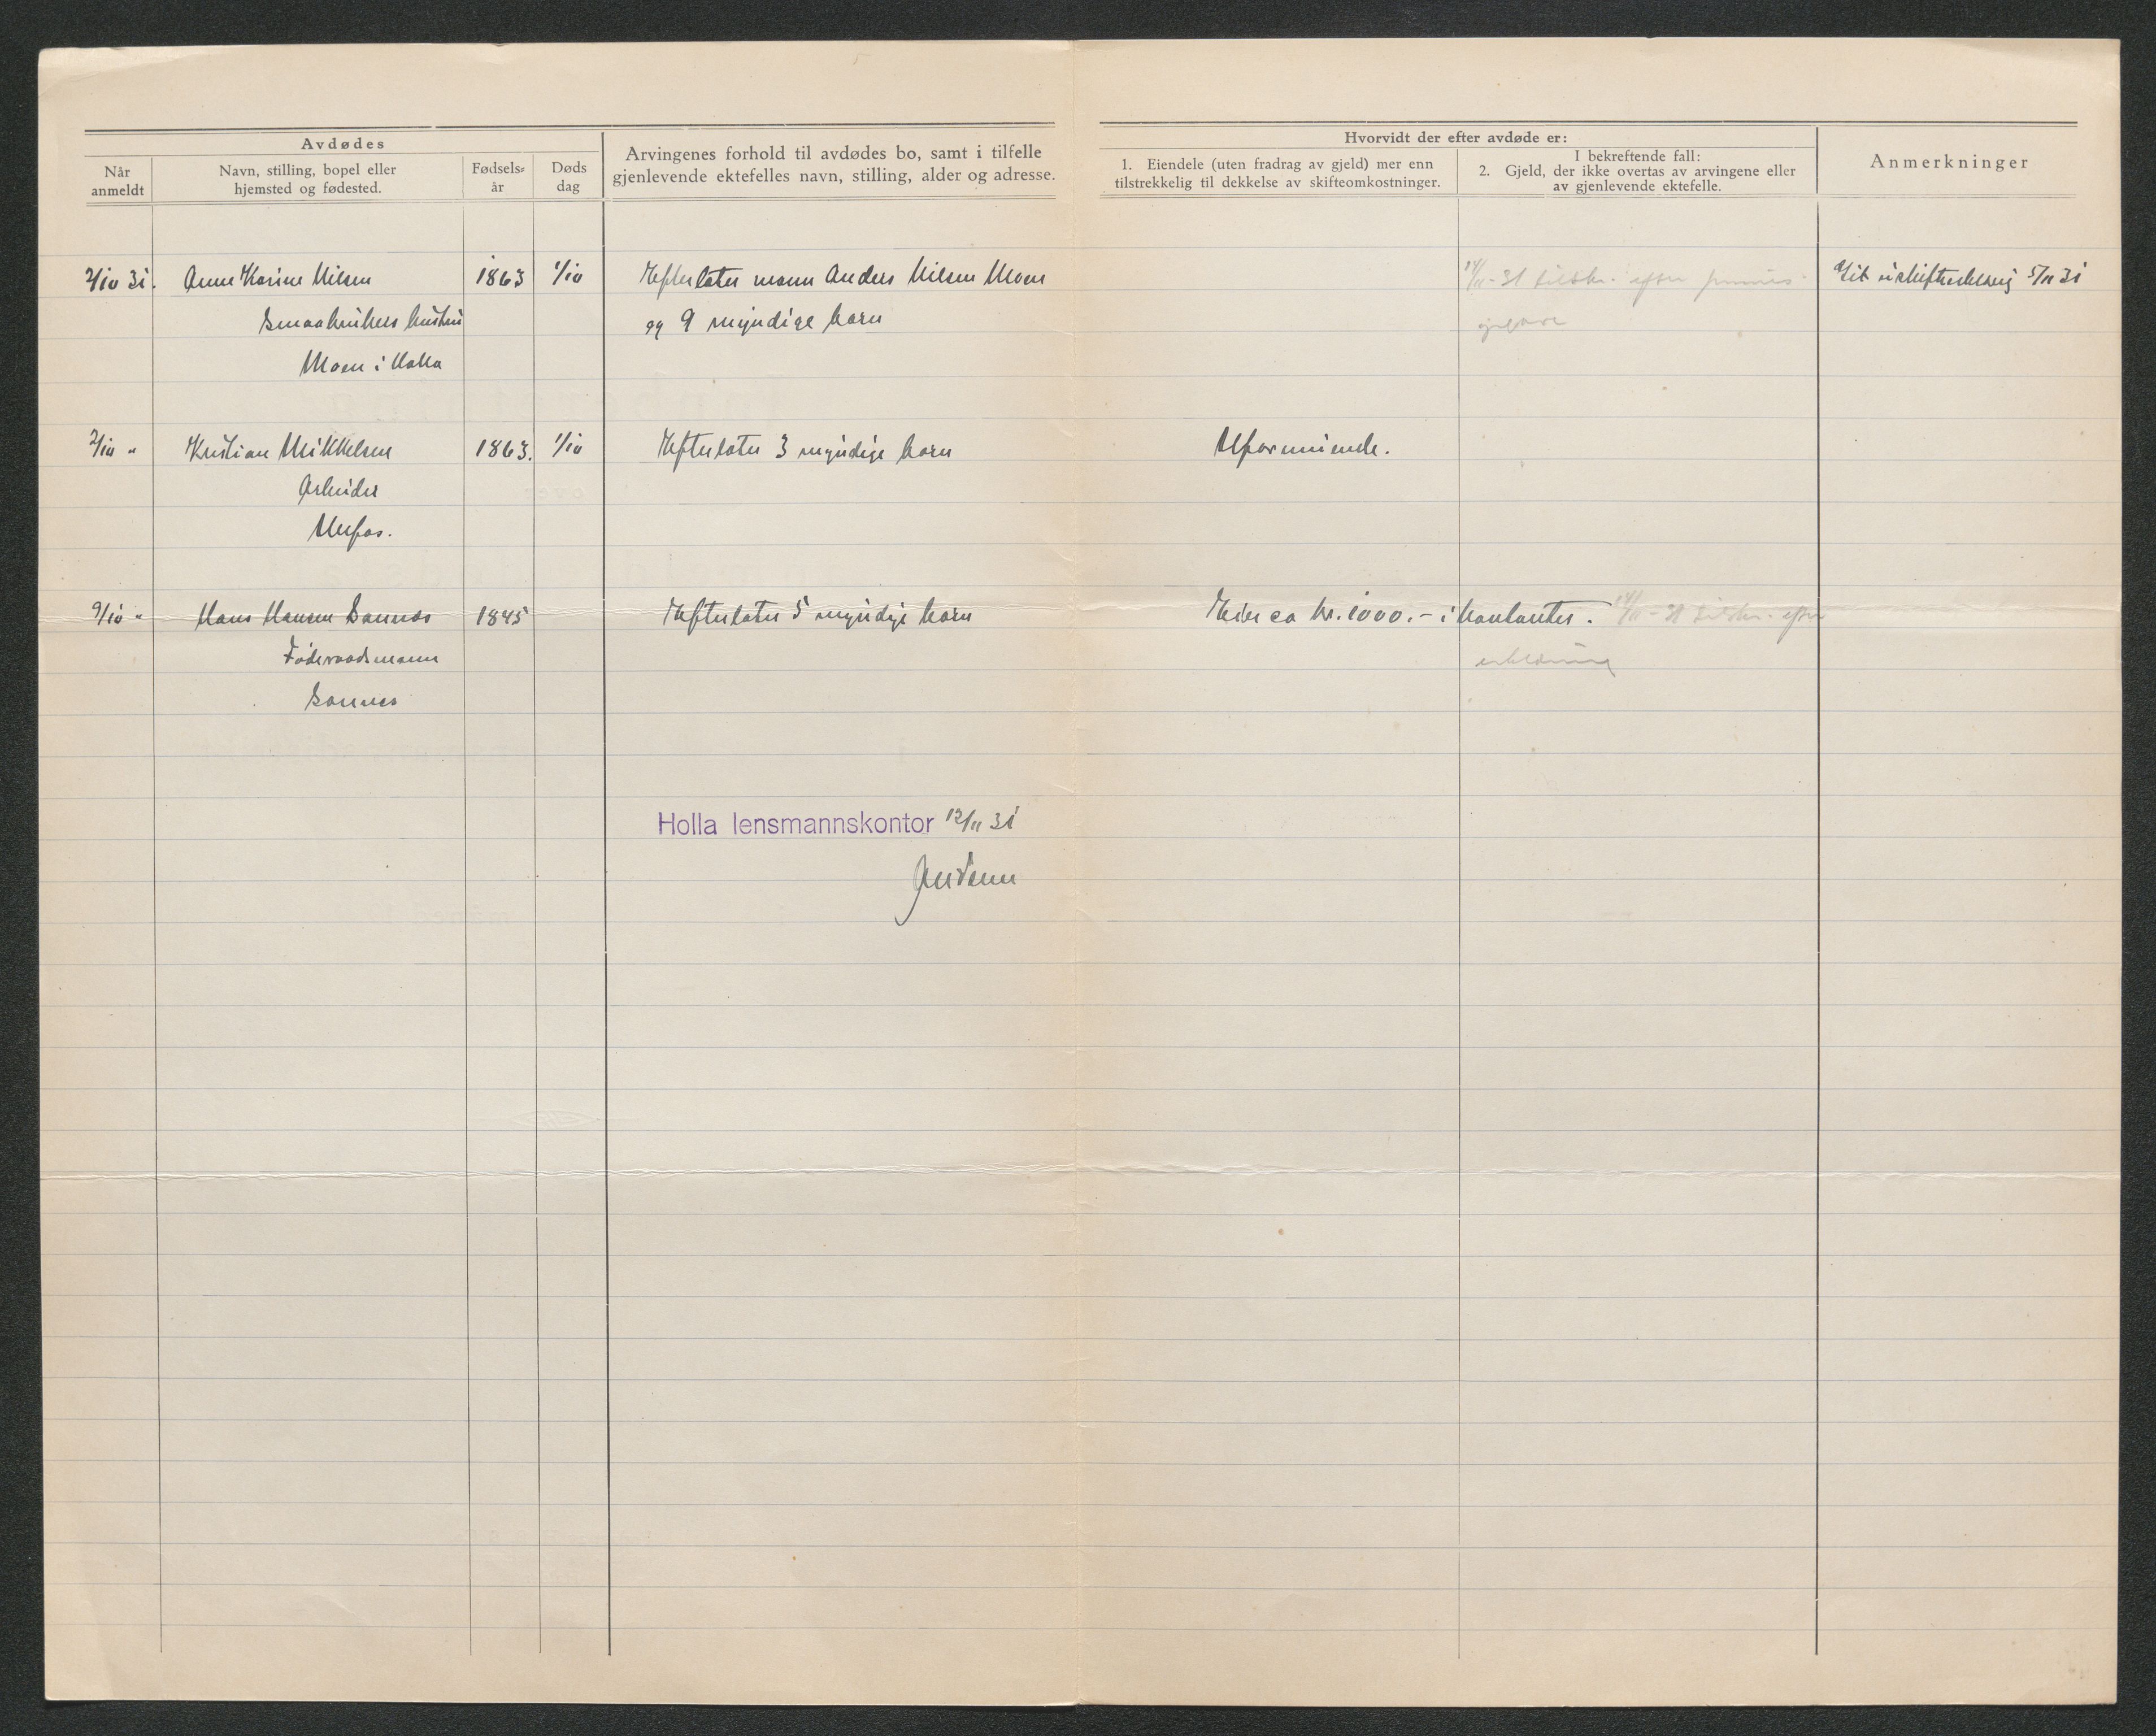 Avdødes
Når anmeldt
Navn, stilling, bopel eller hjemsted og fødested.
Fødsels-år
Døds dag
Arvingenes forhold til avdødes bo, samt i tilfelle gjenlevende ektefelles navn, stilling, alder og adresse.
Hvorvidt der efter avdøde er:
1. Eiendele (uten fradrag av gjeld) mer enn tilstrekkelig til dekkelse av skifteomkostninger.
I bekreftende fall:
2. Gjeld, der ikke overtas av arvingene eller av gjenlevende ektefelle.
Anmerkninger
2/10 31. Anne Karine Nilsen 1863 1/10 Efterlater mann Anders Nilsen Moen 14/11-31 tilskr. efter 5/11 31
Smaabrukers hustru og 9 myndige barn
Moen i Holla
2/10 " Kristian Mikkelsen 1863. 1/10 Efterlater 3 myndige barn Uformuende.
Arbeider
Ulefos.
9/10 " Hans Hansen Sannes 1845 Efterlater 5 myndige barn Eier ca kr. 1000.- i kontanter. 14/11-31 tilskr. efter
Føderaadsmann erklæring
Sannes
Holla lensmannskontor 12/11 31